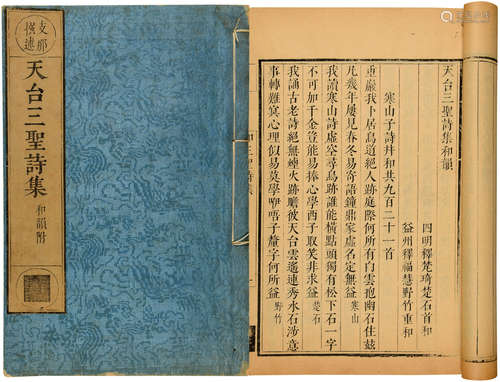 支那
撰述
天台三聖詩集
和韻附
天台三聖詩集和韻
四明釋梵琦楚石首和
益州釋福慧野竹重和
寒山子詩并和共九百二十一首
重巖我卜居鳥道絕人跡庭際何所有白雲抱幽石住茲
凡幾年屢見春冬易寄語鐘鼎家虛名定無益寒山
我讀寒山詩虛空尋鳥跡誰能橫點頭獨有松下石一字
不可加千金豈能易捧心學西子取笑非求益楚石
我誦古老詩絕無煉火跡瞻彼天台雲遙連秀水石涉意
事轉難冥心理似易莫學咿唔子釐字何所益野竹